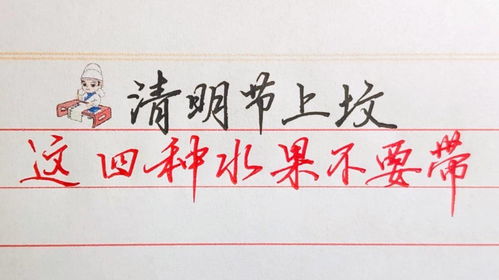 清明节上坟
这四种水果不要带